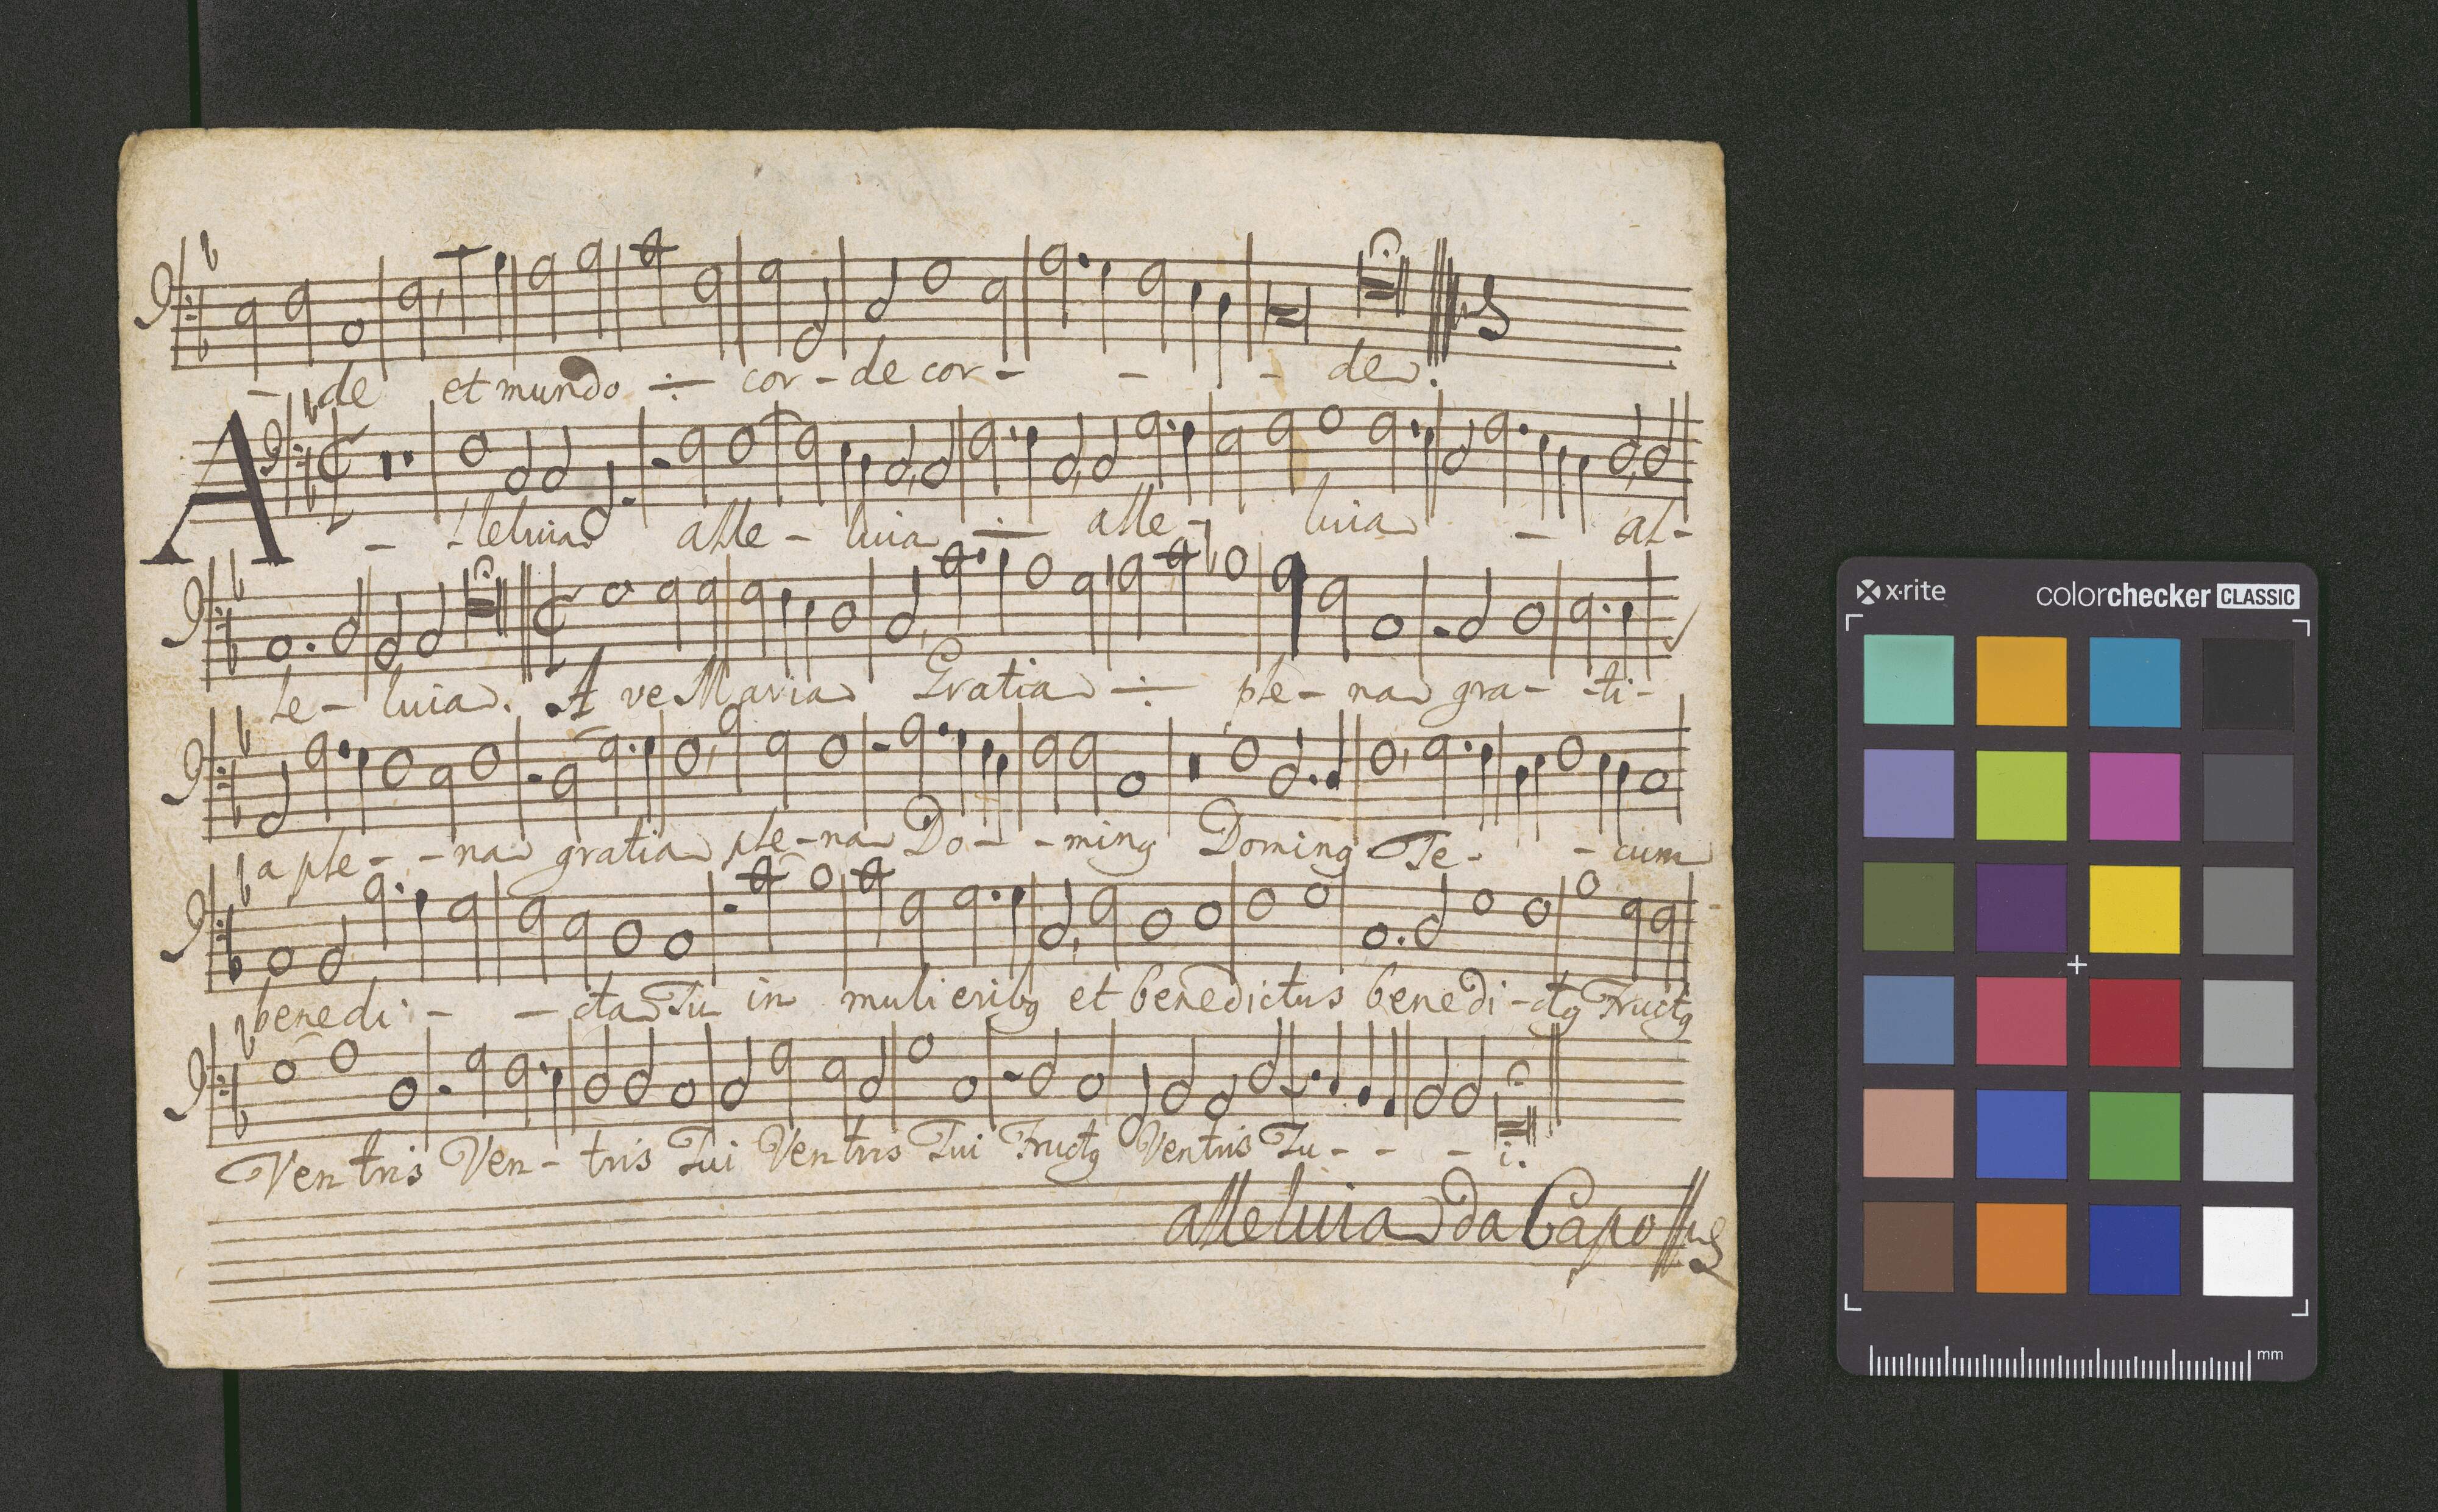 - de et mundo ÷ cor - de cor - - - de.
A - lleluia alle - luia ÷ alle - luia - al-
le - luia. Ave Maria Gratia ÷ ple - na gra - ti-
a ple - - na gratia ple - na Do - - minꝯ Dominꝯ Te - - cum
benedi - - cta Tu in mulieribꝯ et benedictus benedi - ctꝯ Fructꝯ
Ventris Ven - tris Tui Ventris Tui Fructꝯ Ventris Tu - - - i.
alleluia da Capo
x·rite colorchecker CLASSIC
mm